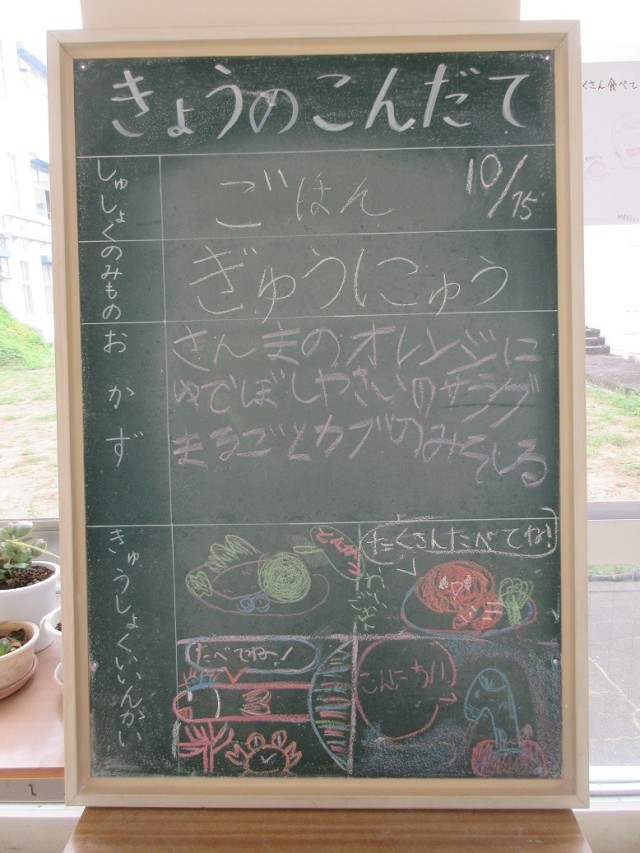 きょうのこんだて
しゅしょく
ごはん
10/15
のみもの
ぎゅうにゅう
おかず
さんまのオレンジに
ゆでぼしやさいのサラダ
まるごとカブのみそしる
きゅうしょくいいんかい
たくさんたべてね!
たべてね!
こんにちは
くさん食べて